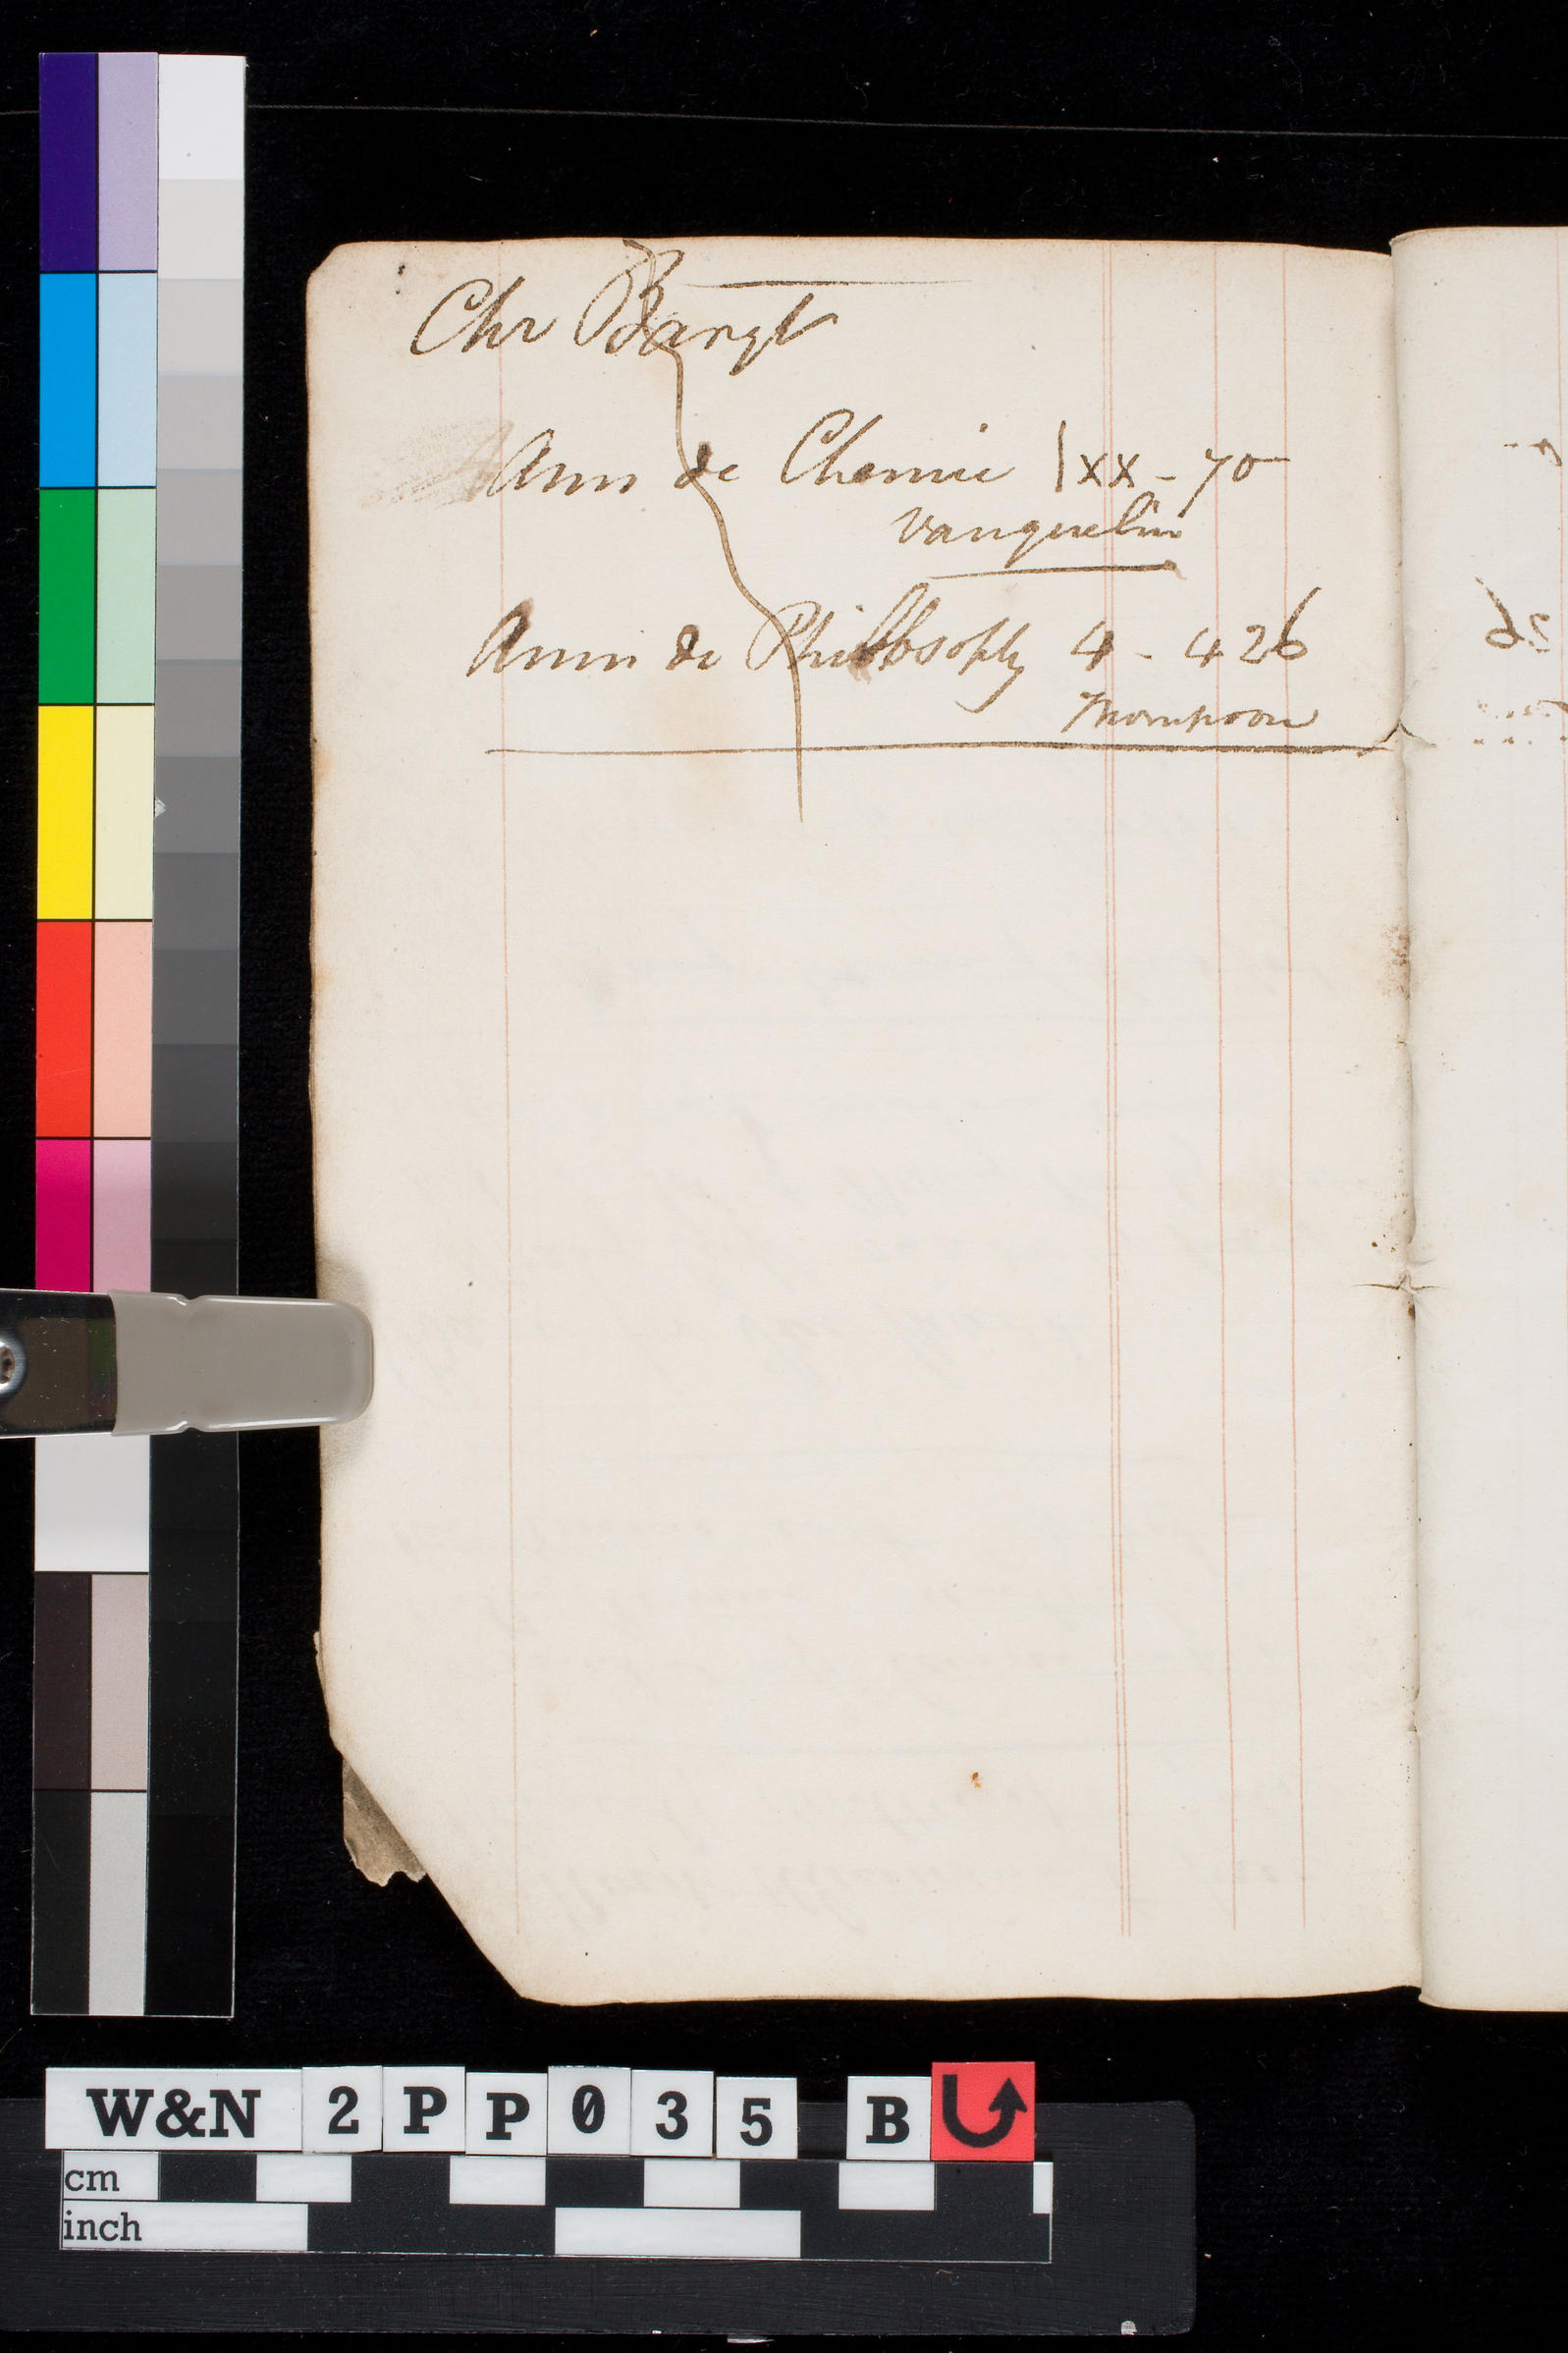 Chr Baryt
Ann de Chemie lxx - 70
Vauquelin
Ann de Philosophy 4 - 426
Thompson
de
W&N 2PP035 B
cm
inch